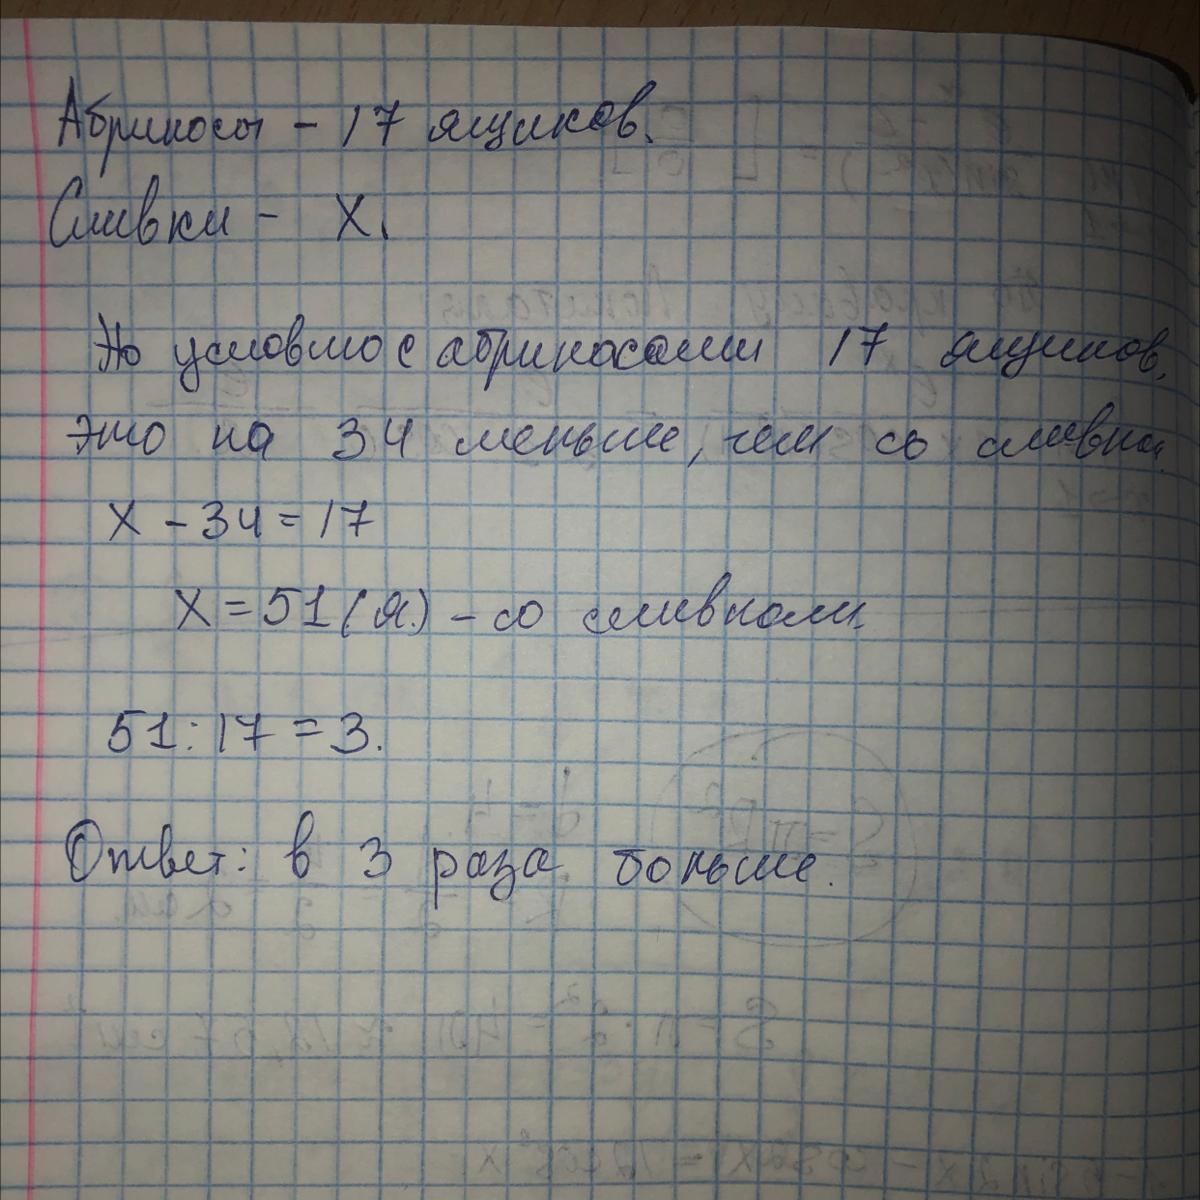 Абрикосы - 17 ящиков.
Сливки - X.
По условию с абрикосами 17 ящиков,
это на 34 меньше, чем со сливками.
X - 34 = 17
X = 51 (я.) - со сливками.
51 : 17 = 3.
Ответ: в 3 раза больше.